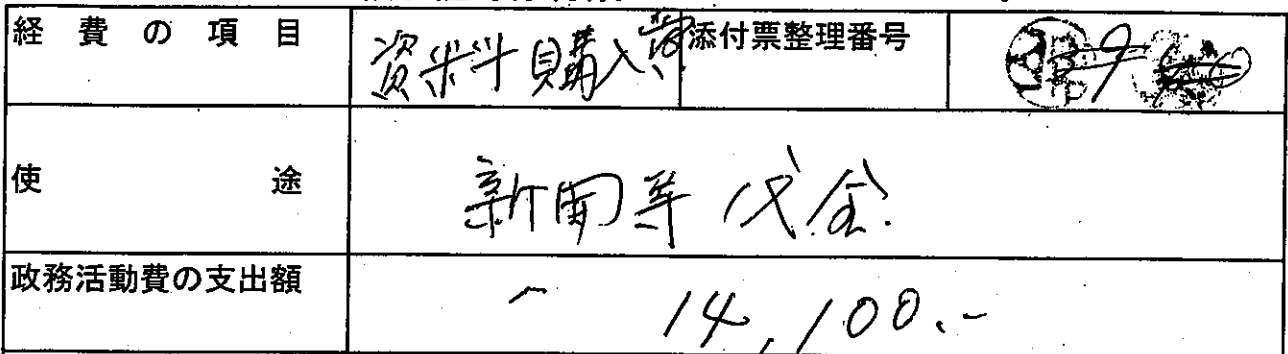 経費の項目 資料購入費 添付票整理番号
使途 新聞等代金.
政務活動費の支出額 14,100.-